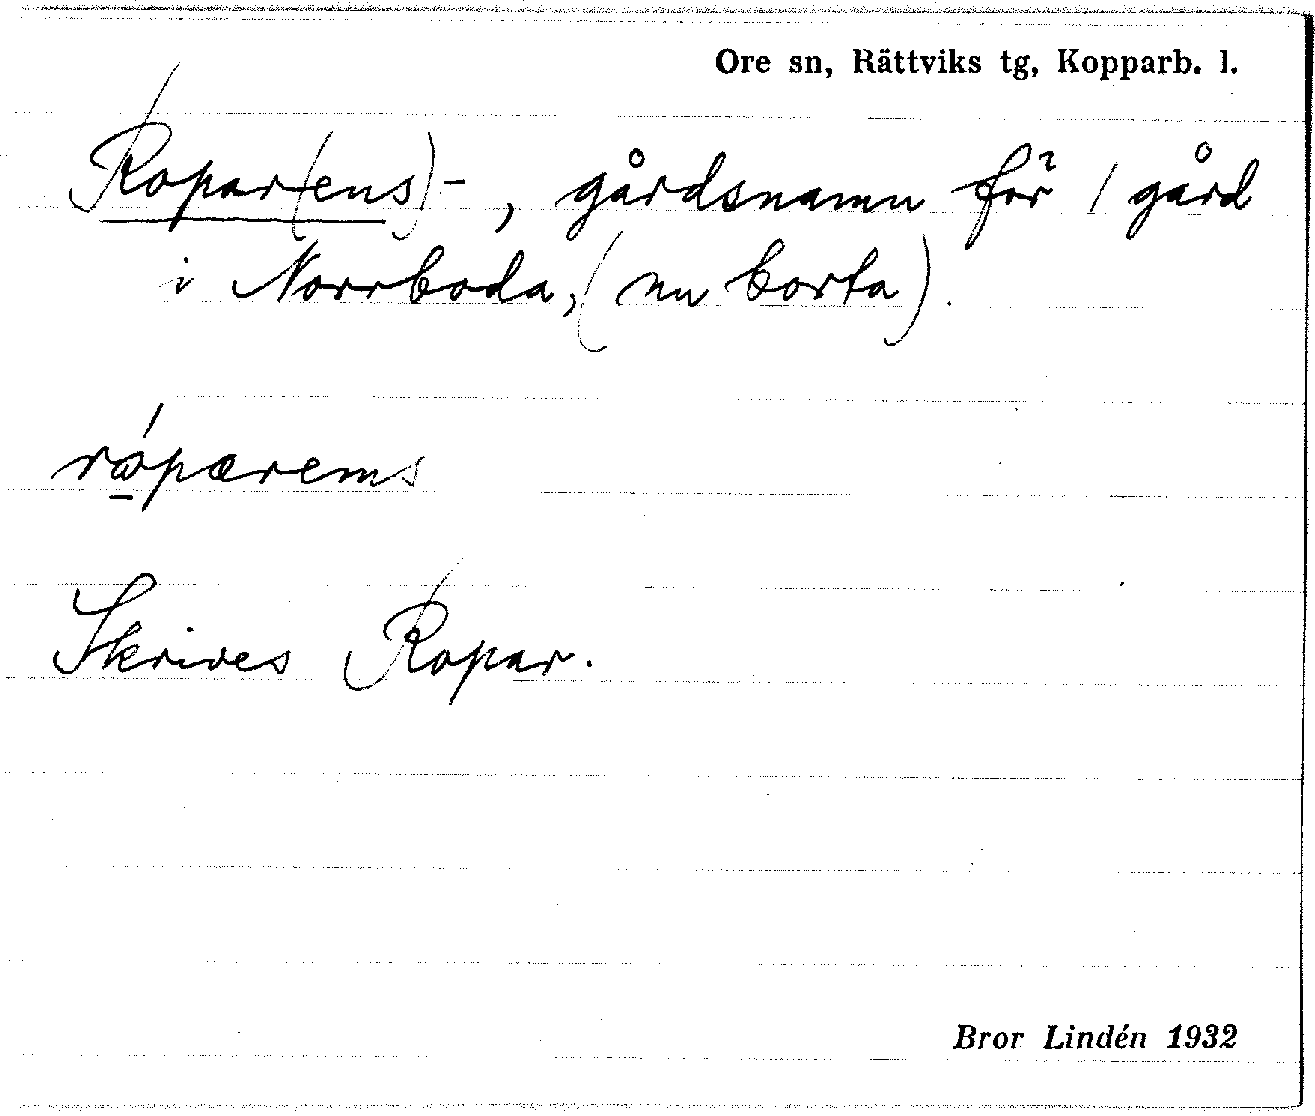 Ore sn, Rättviks tg, Kopparb. l.
Ropar(ens)-, gårdsnamn för 1 gård
i Norrboda, (nu borta).
rópærems
Skrives Ropar.
Bror Lindén 1932